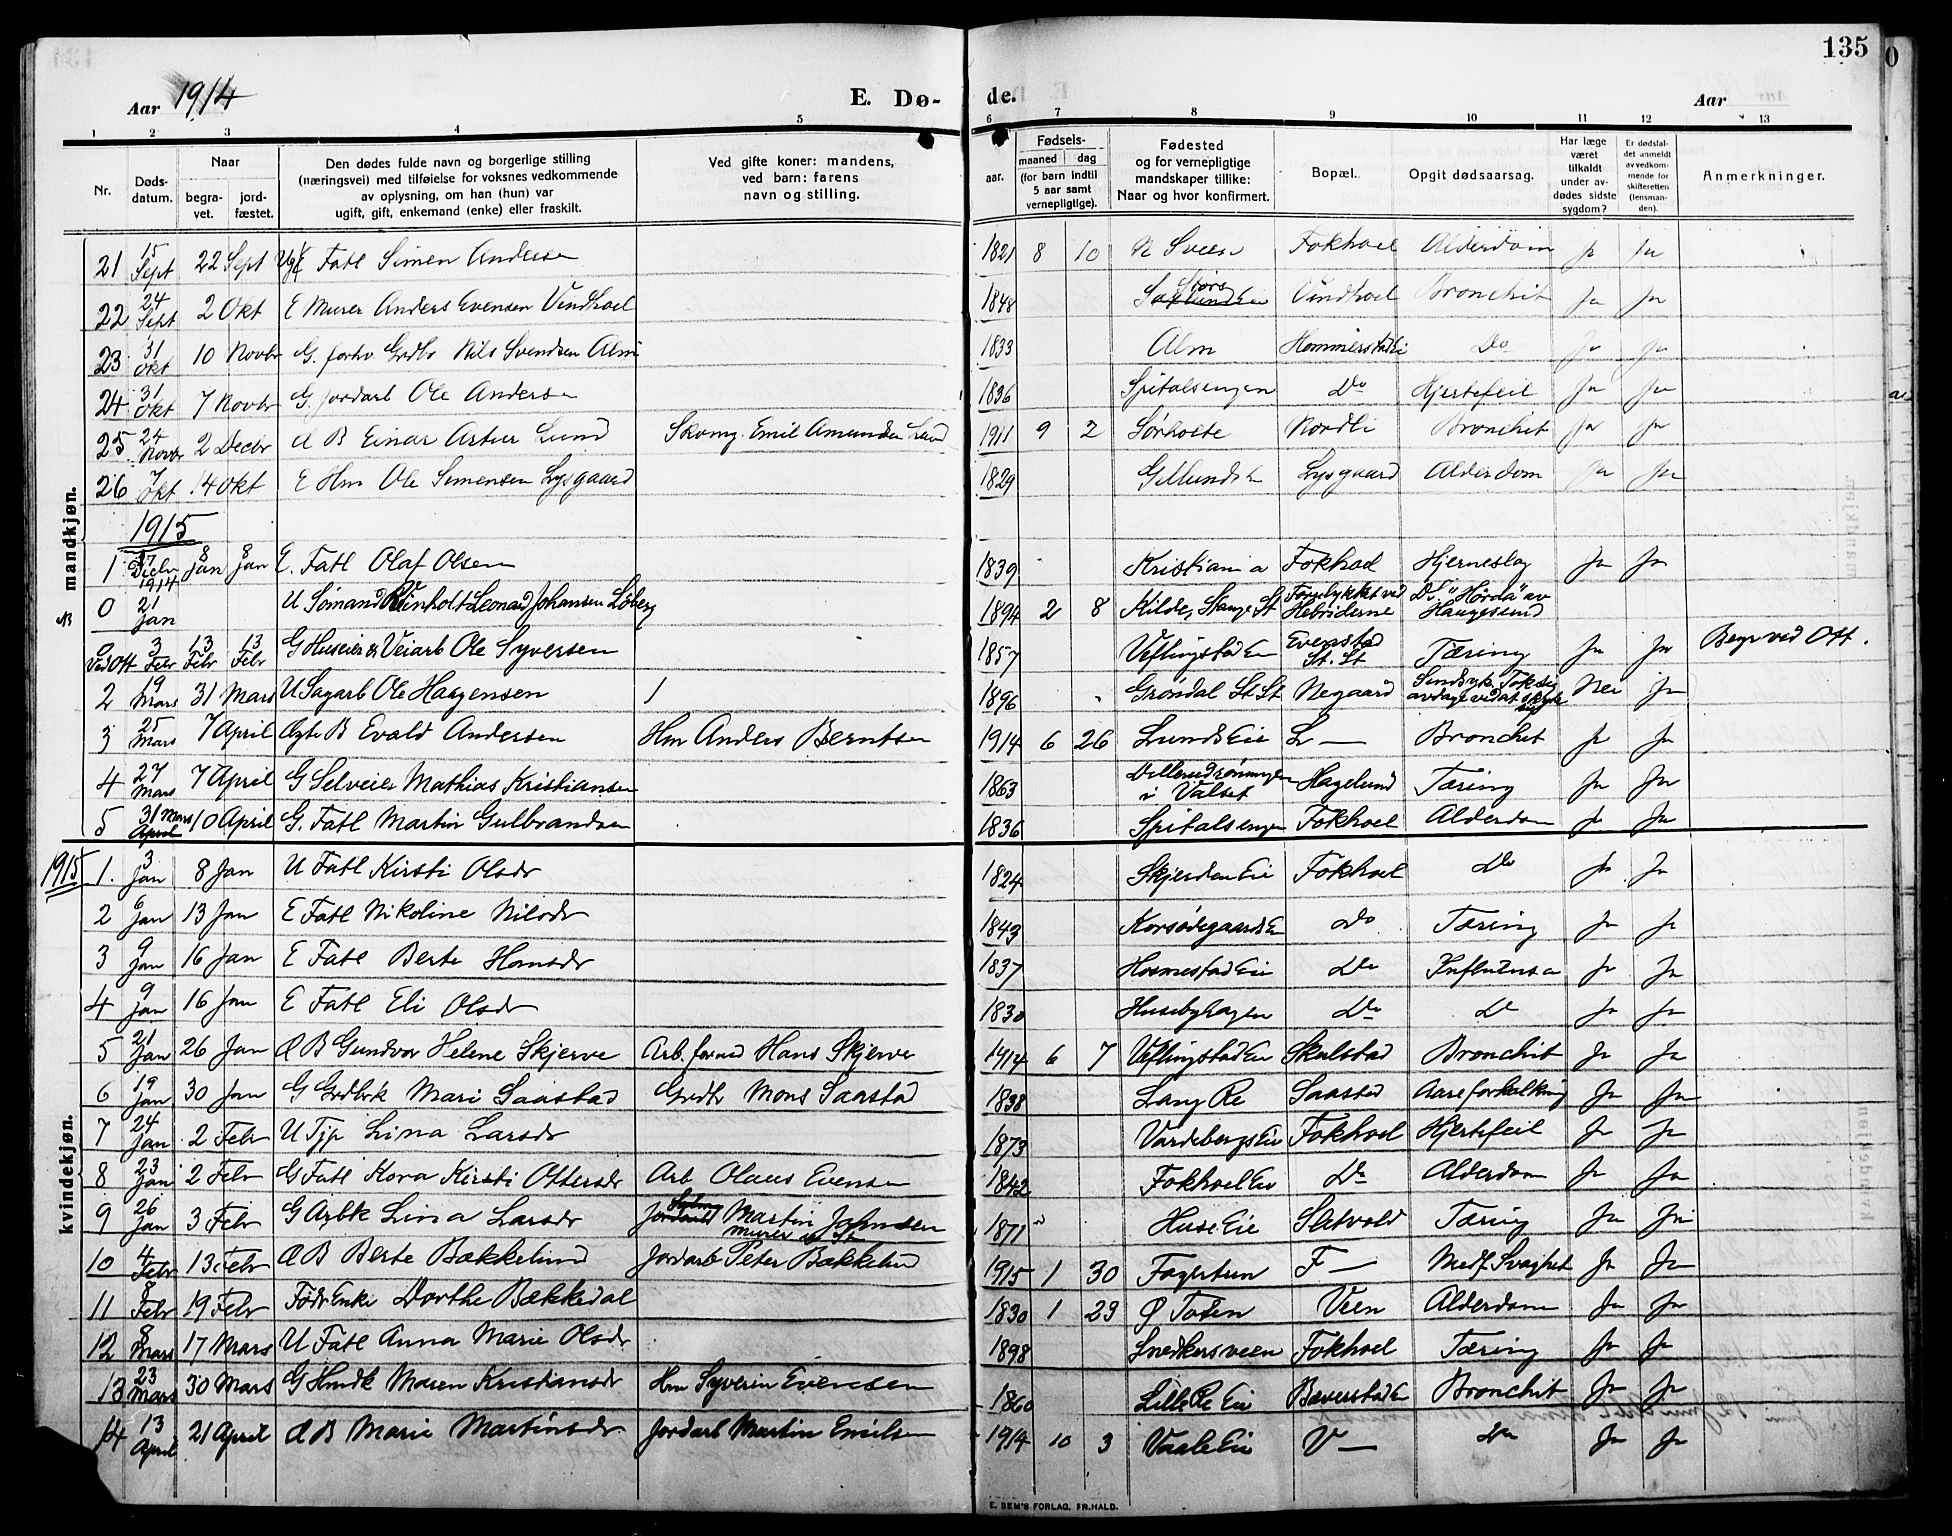 135
Aar 1914
E. Dø-
de.
Aar
1 2 3 4 5 6 7 8 9 10 11 12 13
Nr.
Døds-
datum.
Naar
begra-
vet.
jord-
fæstet.
Den dødes fulde navn og borgerlige stilling
(næringsvei) med tilføielse for voksnes vedkommende
av oplysning, om han (hun) var
ugift, gift, enkemand (enke) eller fraskilt.
Ved gifte koner: mandens,
ved barn: farens
navn og stilling.
aar.
Fødsels-
maaned dag
(for barn indtil
5 aar samt
vernepligtige).
Fødested
og for vernepligtige
mandskaper tillike:
Naar og hvor konfirmert.
Bopæl.
Opgit dødsaarsag.
Har læge
været
tilkaldt
under av-
dødes sidste
sygdom?
Er dødsfal-
det anmeldt
av vedkom-
mende for
skifteretten
(lensman-
den).
Anmerkninger.
mandkjøn.
21 15 Sept 22 Sept Fatl Simen Andersen 1821 8 10 N Sveen Fokhoel Alderdom Ja Ja
22 24 Sept 2 Okt E Murer Anders Evensen Vindhoel 1848 Vindhoel Bronchit Ja Ja
23 31 Okt 10 Novbr G. forhv Grdbr Nils Svendsen Alm 1833 Alm Do Ja Ja
24 31 Okt 7 Novbr G. Jordarb Ole Andersen 1836 Spitalsengen Do Hjertefeil Ja Ja
25 24 Novbr 2 Decbr Æ B Einar Artur Lund Skomg. Emil Amundsen Lund 1911 9 2 Sørholte Nordli Bronchit Ja Ja
26 7 Okt 14 Okt E Hm Ole Simensen Lysgaard 1829 Lysgaard Alderdom Ja Ja
1915
1 27 Decbr 1914 8 Jan 8 Jan E. Fatl Olaf Olsen 1839 Kristiania Fokhoel Hjerneslag Ja Ja
0 21 Jan U Sømand Reinholt Leonard Johansen Løberg 1894 2 8 Kilde, Stange St Forulykket ved Hebriderne D/S "Hörda" av Haugesund
0 Ved Ott 3 Febr 13 Febr 13 Febr G Huseier og Veiarb Ole Syversen 1857 Veflingstad Ei Evenstad St. St Tæring Ja Ja Begr ved Ott.
2 19 Mars 31 Mars U Sagarb Ole Haagensen 1896 Grøndal St St Negaard Sindsyk Tok sig avdage ved at skyte sig Nei Ja
3 25 Mars 7 April Ægte B Evald Andersen Hm Anders Berntsen 1914 6 26 Lunds Eie L — Bronchit Ja Ja
4 27 Mars 7 April G Selveier Mathias Kristiansen 1863 i Valset Hagelund Tæring Ja Ja
5 31 Mars 10 April G. Fatl Martin Gulbrandsen 1836 Spitalsengen Fokhoel Alderdom Ja Ja
kvindekjøn.
1915 1. 3 Jan 8 Jan U Fatl Kirsti Olsdr 1824 Skjerden Eie Fokhoel Do Ja Ja
2 6 Jan 13 Jan E Fatl Nikoline Nilsdr 1843 Korsødegaards Ei Do Tæring Ja Ja
3 9 Jan 16 Jan E Fatl Berte Hansdr 1837 Hosmestad Eie Do Influensa Ja Ja
4 9 Jan 16 Jan E Fatl Eli Olsdr 1830 Husebyhagen Do Do Ja Ja
5 21 Jan 26 Jan Æ B Gundvor Helene Skjerve Arb. formd Hans Skjerve 1914 6 7 Veflingstad Eie Skulstad Bronchit Ja Ja
6 19 Jan 30 Jan G Grdbrk Mari Saastad Grdbr Mons Saastad 1838 Lang Re Saastad Aareforkalkning Ja Ja
7 24 Jan 2 Febr U Tjp Lina Larsdr 1873 Vardebergs Eie Fokhoel Hjertefeil Ja Ja
8 23 Jan 2 Febr G Fatl Kona Kirsti Ottersdr Arb Olaus Evensen 1842 Fokhoel Eie Do Alderdom Ja Ja
9 26 Jan 3 Febr G Arbk Lina Larsdr Martin Johnsen 1871 Huse Eie Sletvold Tæring Ja Ja
10 4 Febr 13 Febr Æ B Berte Bækkelund Jordarb Peter Bækkelund 1915 1 30 Fagertun F — Medf. Svaghet Ja Ja
11 8 Febr 19 Febr Enke Dorthe Bækkedal 1830 1 29 Ø Toten Veen Alderdom Ja Ja
12 8 Mars 17 Mars U Fatl Anna Marie Olsdr 1898 Snedkersveen Fokhoel Tæring Ja Ja
13 23 Mars 30 Mars G Hmdk Maren Kristiansdr Hm Syverin Evensen 1860 Lille Re Eie Baverstad Ei Bronchit Ja Ja
14 13 April 21 April Æ B Marie Martinsdr Jordarb Martin Emilsen 1914 10 3 Vaale Eie V — Do Ja Ja
E. SEM'S FORLAG, FR.HALD.